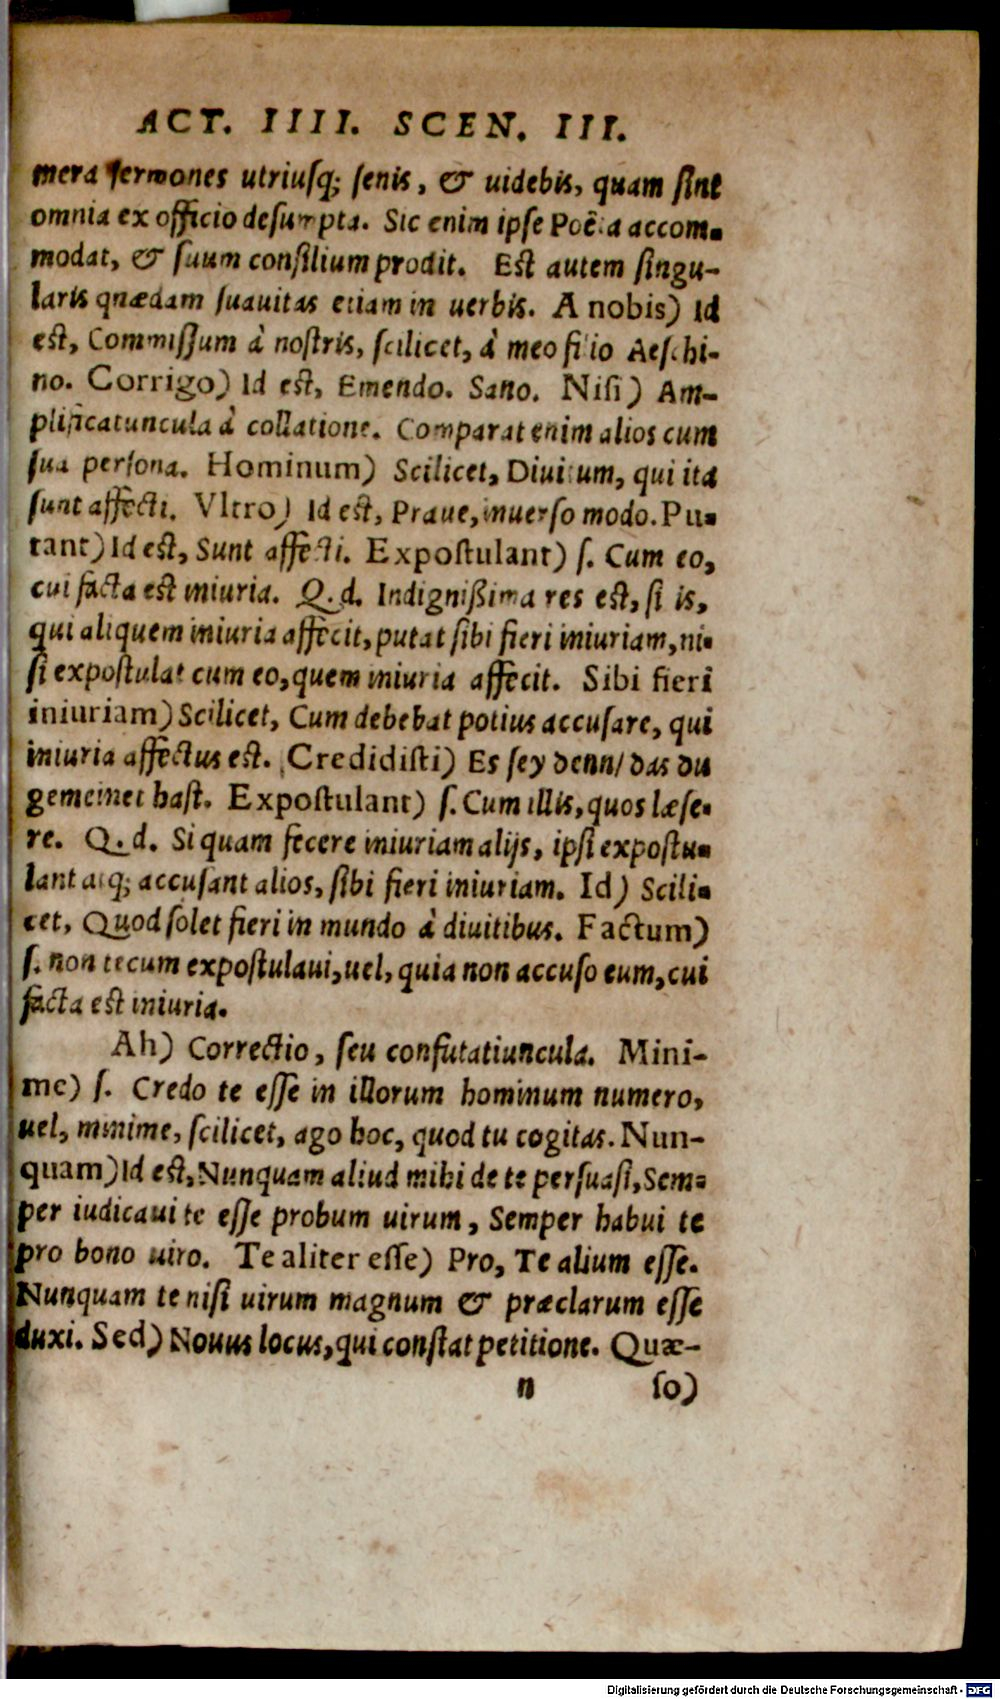 ACT. IIII. SCEN. III.
mera ſermones utriuſq; ſenis, & uidebis, quam ſint
omnia ex officio deſumpta. Sic enim ipſe Poëta accom-
modat, & ſuum conſilium prodit. Eſt autem ſingu-
laris quædam ſuauitas etiam in uerbis. A nobis) Id
eſt, Commiſſum à noſtris, ſcilicet, à meo filio Aeſchi-
no. Corrigo) Id eſt, Emendo. Sano. Niſi) Am-
plificatuncula à collatione. Comparat enim alios cum
ſua perſona. Hominum) Scilicet, Diuitum, qui ita
ſunt affecti. Vltro) Id eſt, Praue, inuerſo modo. Pu-
tant) Id eſt, Sunt affecti. Expoſtulant) ſ. Cum eo,
cui facta eſt iniuria. Q.d. Indignißima res eſt, ſi is,
qui aliquem iniuria affecit, putat ſibi fieri iniuriam, ni-
ſi expoſtulat cum eo, quem iniuria affecit. Sibi fieri
iniuriam) Scilicet, Cum debebat potius accuſare, qui
iniuria affectus eſt. Credidiſti) Es ſey denn/ das du
gemeinet haſt. Expoſtulant) ſ. Cum illis, quos læſe-
re. Q. d. Si quam fecere iniuriam alijs, ipſi expoſtu-
lant atq; accuſant alios, ſibi fieri iniuriam. Id) Scili-
cet, Quod ſolet fieri in mundo à diuitibus. Factum)
ſ. non tecum expoſtulaui, uel, quia non accuſo eum, cui
facta eſt iniuria.
Ah) Correctio, ſeu confutatiuncula. Mini-
me) ſ. Credo te eſſe in illorum hominum numero,
uel, minime, ſcilicet, ago hoc, quod tu cogitas. Nun-
quam) Id eſt, Nunquam aliud mihi de te perſuaſi, Sem-
per iudicaui te eſſe probum uirum, Semper habui te
pro bono uiro. Te aliter eſſe) Pro, Te alium eſſe.
Nunquam te niſi uirum magnum & præclarum eſſe
duxi. Sed) Nouus locus, qui conſtat petitione. Quæ-
n ſo)
Digitalisierung gefördert durch die Deutsche Forschungsgemeinschaft - DFG